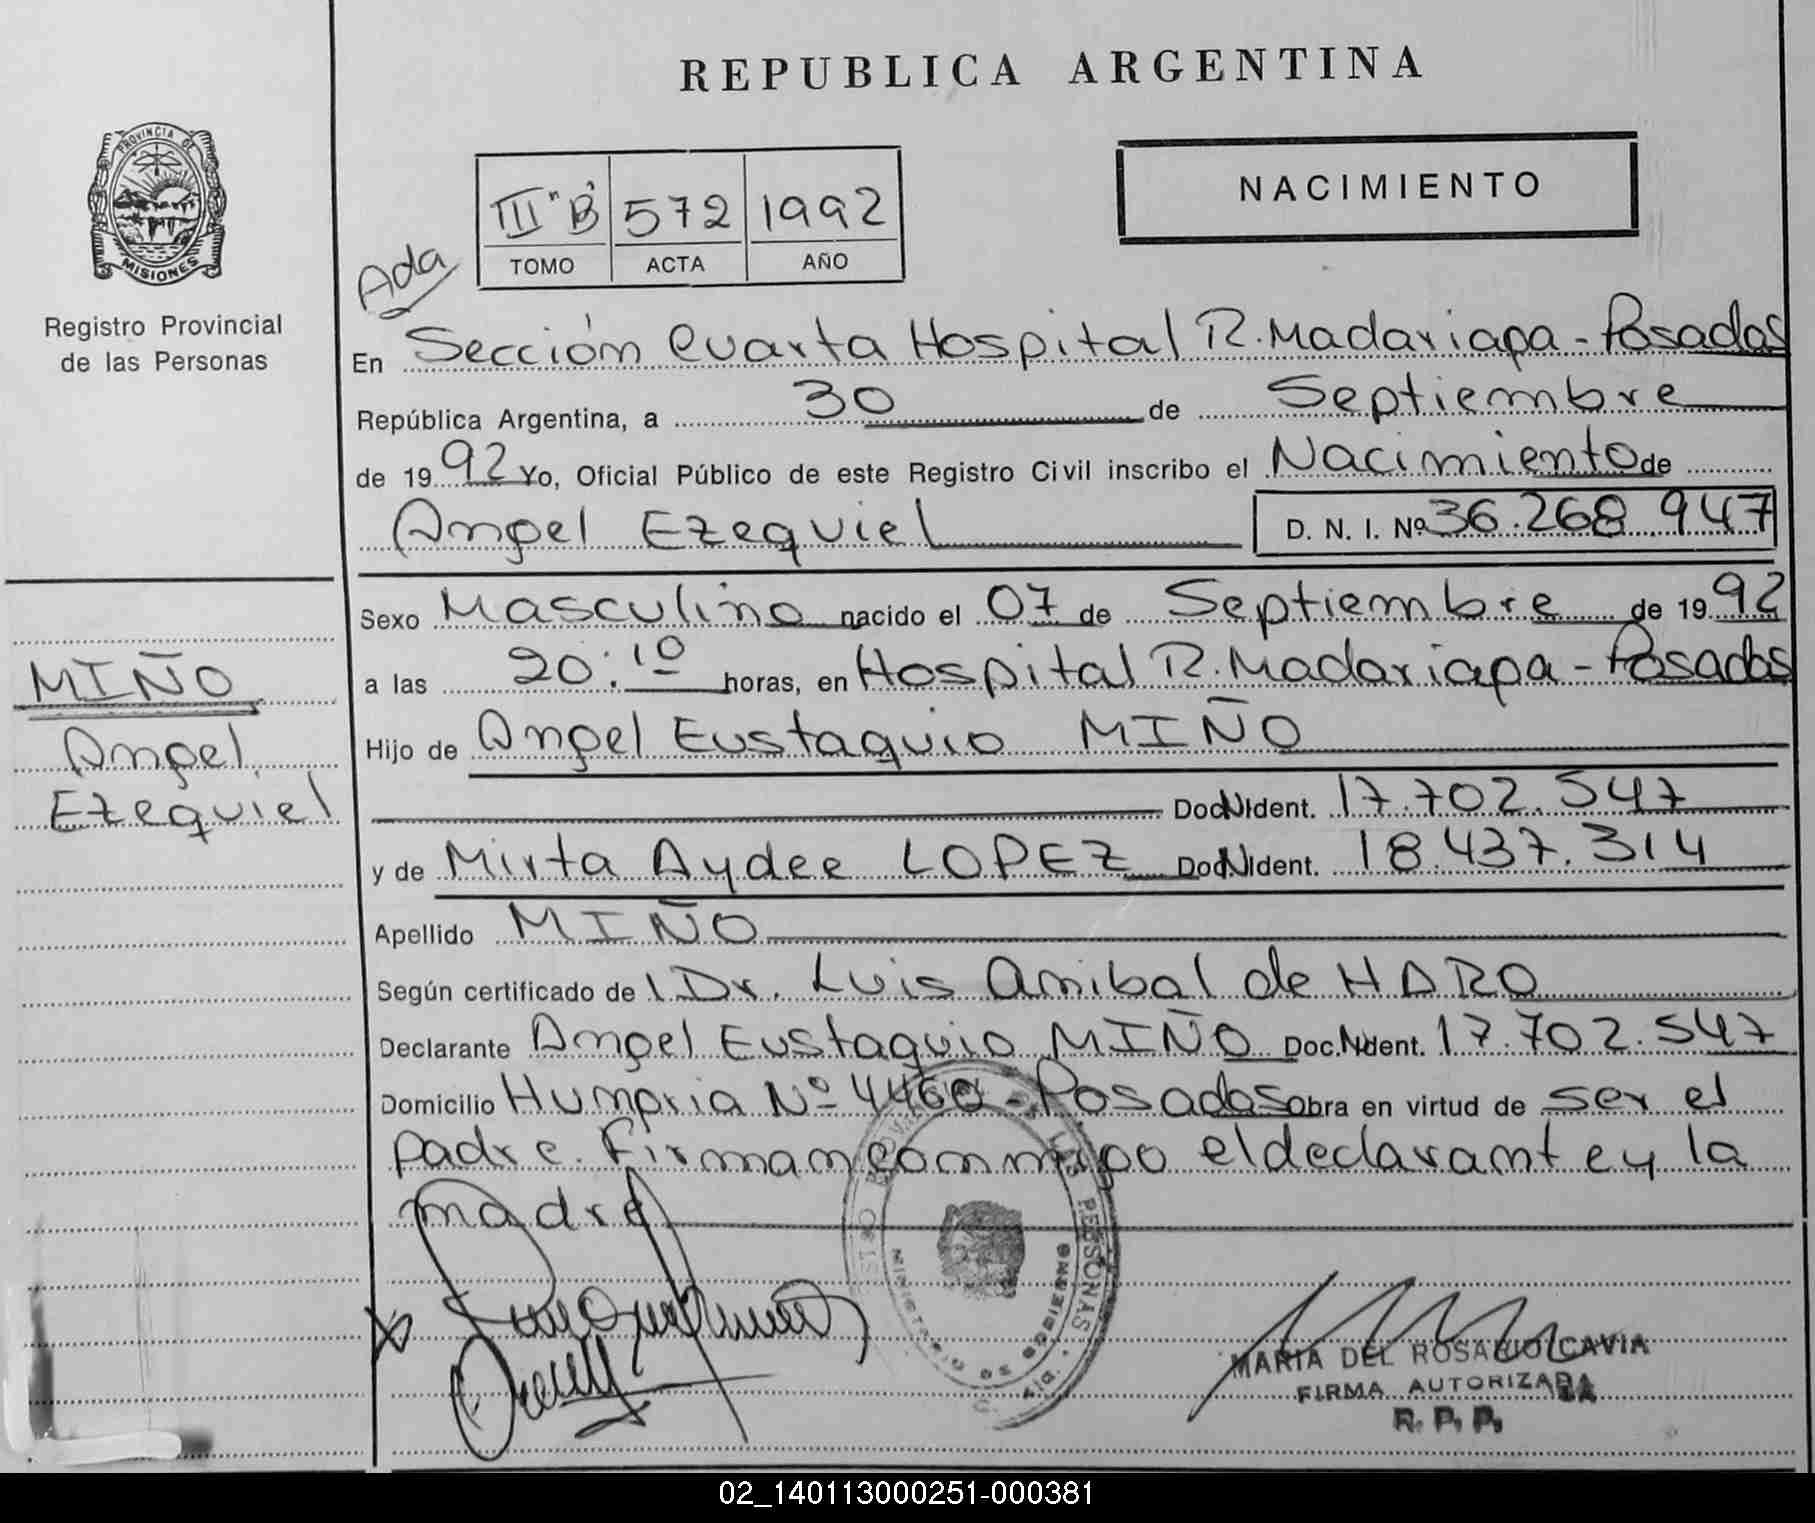 REPUBLICA ARGENTINA
PROVINCIA DE
MISIONES
Registro Provincial
de las Personas
NACIMIENTO
III "B" 572 1992
TOMO ACTA AÑO
Ada
En Sección Cuarta Hospital R. Madariaga - Posadas
República Argentina, a 30 de Septiembre
de 1992 Yo, Oficial Público de este Registro Civil inscribo el Nacimiento de
Angel Ezequiel D. N. I. Nº 36.268.947
MIÑO
Angel
Ezequiel
Sexo Masculino nacido el 07 de Septiembre de 1992
a las 20:10 horas, en Hospital R. Madariaga - Posadas
Hijo de Angel Eustaquio MIÑO
Doc. N. Ident. 17.702.547
y de Mirta Aydee LOPEZ Doc. N. Ident. 18.437.314
Apellido MIÑO
Según certificado de l Dr. Luis Anibal de HARO
Declarante Angel Eustaquio MIÑO Doc. N. Ident. 17.702.547
Domicilio Hungria Nº 4460 - Posadas obra en virtud de ser el
padre. Firman conmigo el declarante y la
madre
PERSONAS
MINISTERIO DE GOBIERNO
MARIA DEL ROSARIO CAVIA
FIRMA AUTORIZADA
R. P. P.
02_140113000251-000381